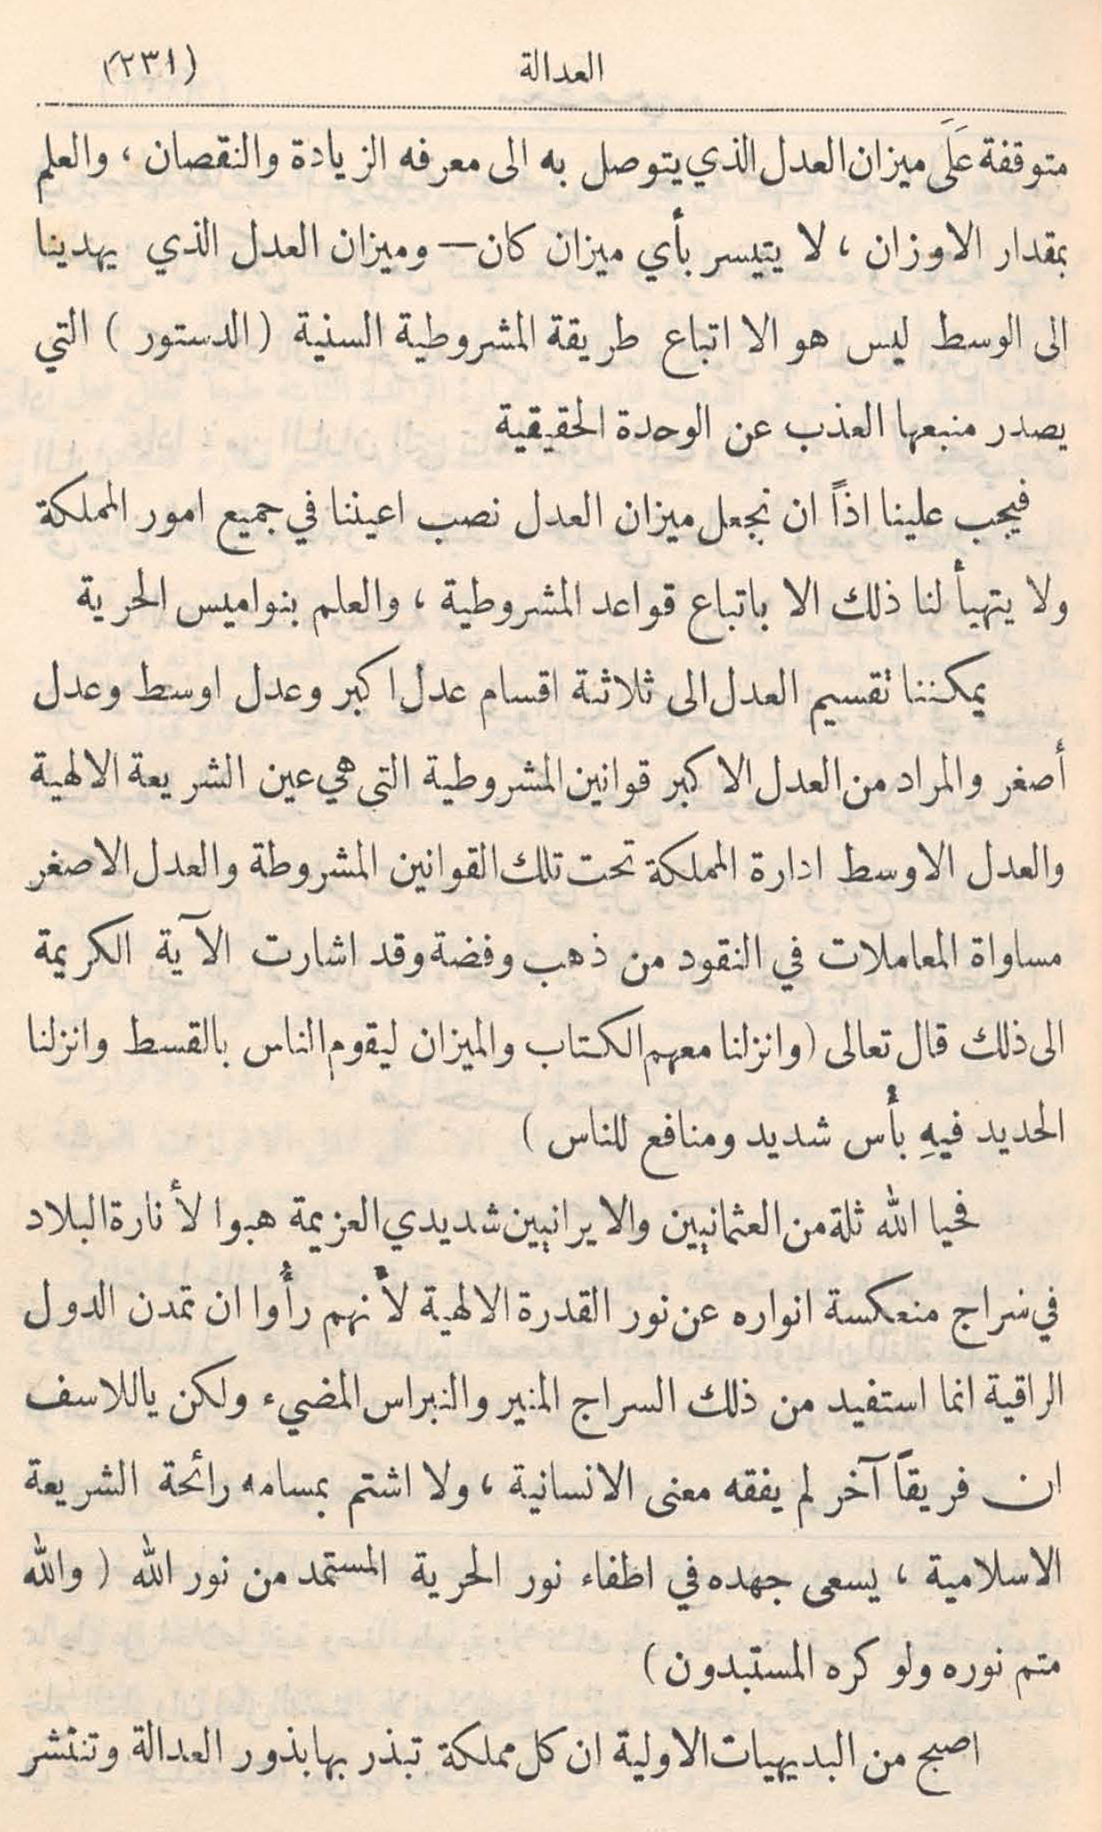 العدالة (٢٣١)
متوقفة عَلَى ميزان العدل الذي يتوصل به الى معرفه الزيادة والنقصان ، والعلم
بمقدار الاوزان ، لا يتيسر بأي ميزان كان — وميزان العدل الذي يهدينا
الى الوسط ليس هو الا اتباع طريقة المشروطية السنية (الدستور) التي
يصدر منبعها العذب عن الوحدة الحقيقية
فيجب علينا اذاً ان نجعل ميزان العدل نصب اعيننا في جميع امور المملكة
ولا يتهيأ لنا ذلك الا باتباع قواعد المشروطية ، والعلم بنواميس الحرية
يمكننا تقسيم العدل الى ثلاثة اقسام عدل اكبر وعدل اوسط وعدل
أصغر والمراد من العدل الاكبر قوانين المشروطية التي هي عين الشريعة الالهية
والعدل الاوسط ادارة المملكة تحت تلك القوانين المشروطة والعدل الاصغر
مساواة المعاملات في النقود من ذهب وفضة وقد اشارت الآية الكريمة
الى ذلك قال تعالى (وانزلنا معهم الكتاب والميزان ليقوم الناس بالقسط وانزلنا
الحديد فيهِ بأس شديد ومنافع للناس)
فحيا الله ثلة من العثمانيين والايرانيين شديدي العزيمة هبوا لأنارة البلاد
في سراج منعكسة انواره عن نور القدرة الالهية لأنهم رأوا ان تمدن الدول
الراقية انما استفيد من ذلك السراج المنير والنبراس المضيء ولكن ياللاسف
ان فريقاً آخر لم يفقه معنى الانسانية ، ولا اشتم بمسامه رائحة الشريعة
الاسلامية ، يسعى جهده في اطفاء نور الحرية المستمد من نور الله (والله
متم نوره ولو كره المستبدون)
اصبح من البديهيات الاولية ان كل مملكة تبذر بها بذور العدالة وتنتشر